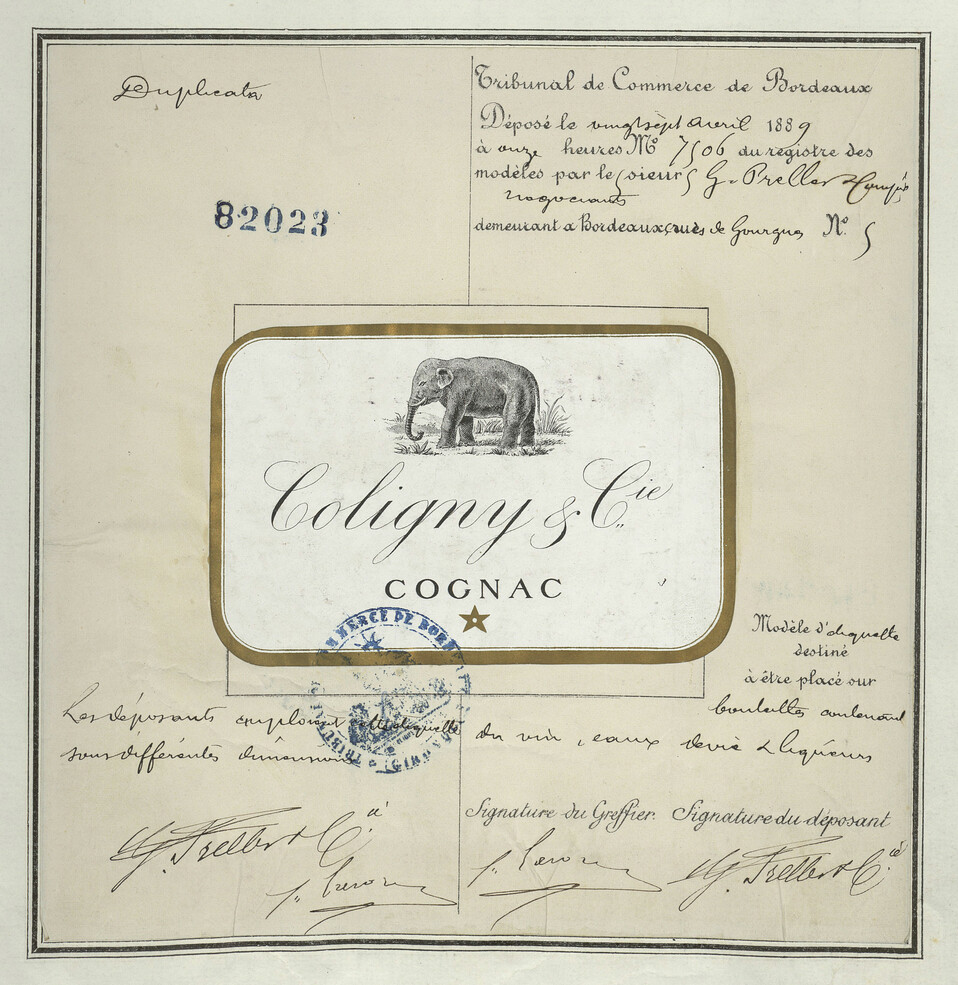 Duplicata
82023
Tribunal de Commerce de Bordeaux
Déposé le vingt sept avril 1889
à onze heures No 7506 du registre des
modèles par le sieurs G. Preller & Compie
négociants
demeurant à Bordeaux, de Gourgue No. 5
Coligny & Cie
COGNAC
Modèle d'étiquette
destiné
à être placé sur
bouteilles contenant
du vin, eaux de vie & liqueurs
Les déposants emploient cette étiquette
sous différentes dimensions
COMMERCE DE BORD
TRIBUNAL
G. Preller & Cie
Signature du Greffier. Signature du déposant
G. Preller & Cie